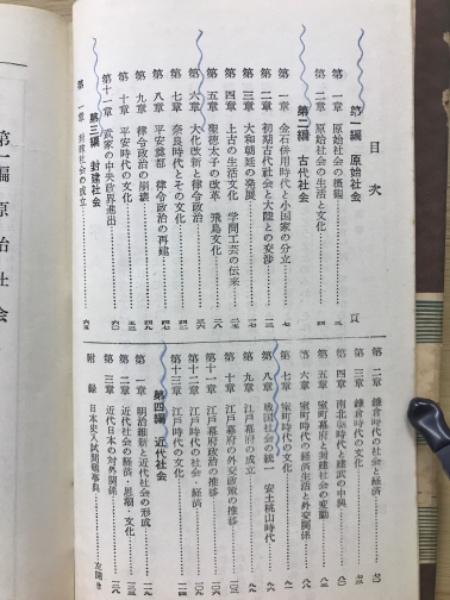 目次
頁
第一編 原始社会
第一章 原始社会の概観
第二章 原始社会の生活と文化
第二編 古代社会
第一章 金石併用時代と小国家の分立 七
第二章 初期古代社会と大陸との交渉
第三章 大和朝廷の発展
第四章 上古の生活文化 学問工芸の伝来
第五章 聖徳太子の改革 飛鳥文化
第六章 大化改新と律令政治
第七章 奈良時代とその文化
第八章 平安奠都 律令政治の再建
第九章 律令政治の崩壊
第十章 平安時代の文化
第十一章 武家の中央政界進出
第三編 封建社会
第一章 封建社会の成立
第二章 鎌倉時代の社会と経済
第三章 鎌倉時代の文化
第四章 南北朝時代と建武の中興
第五章 室町幕府と封建社会の変動
第六章 室町時代の経済生活と外交関係
第七章 室町時代の文化
第八章 戦国社会の統一 安土桃山時代
第九章 江戸幕府の成立
第十章 江戸幕府の外交政策の推移
第十一章 江戸幕府政治の推移
第十二章 江戸時代の社会・経済
第十三章 江戸時代の文化
第四編 近代社会
第一章 明治維新と近代社会の形成
第二章 近代社会の経済・思想・文化
第三章 近代日本の対外関係
附録 日本史入試問題事典
第一編 原始社会